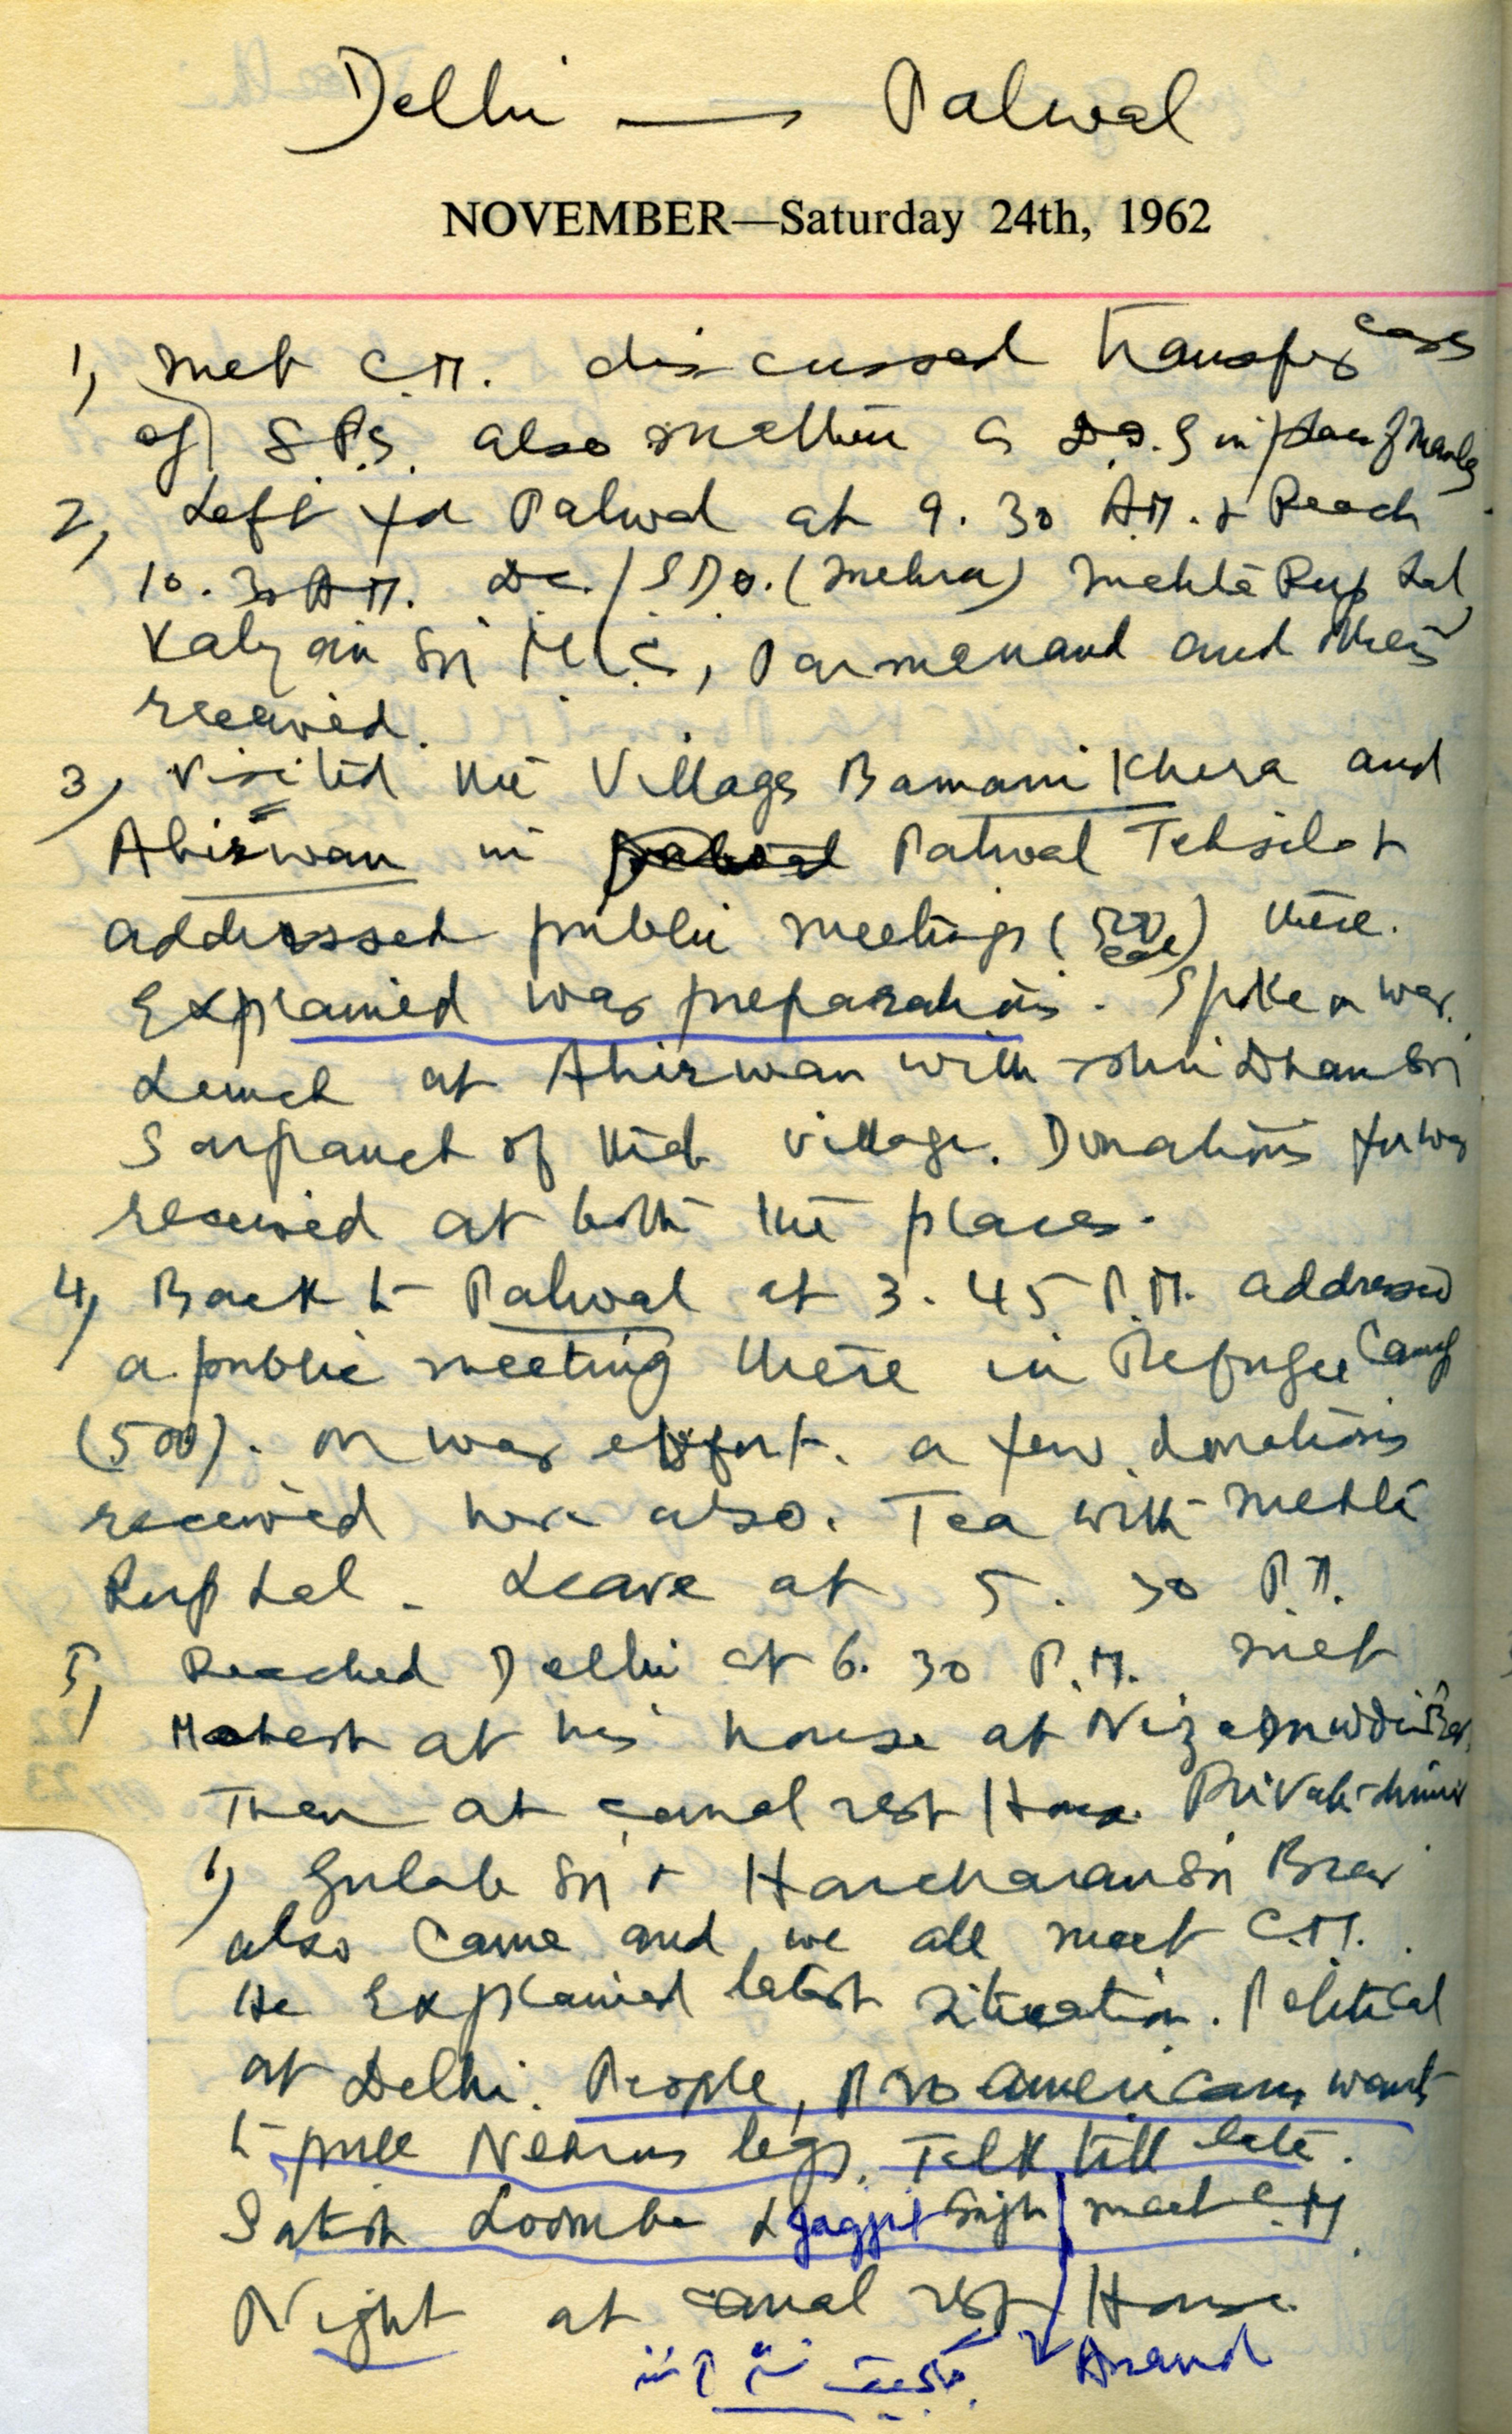 Delhi → Palwal
NOVEMBER—Saturday 24th, 1962
1, met C.M. discussed transfer cases
of S.P.S. also in place of
2, Left for Palwal at 9.30 A.M. & Reach
10.30 A.M. D.C./S.D.O. (Mehra) Mehta Rup Lal,
Kalyan Sn M.L.C, Parmanand and others
received.
3, Visited the Village Bamani Khera and
Ahirwan in Palwal Tehsil &
addressed public meetings (500 each) there.
Explained war preparations. Spoke on war.
Lunch at Ahirwan with Shri Dhan Sn
Sarpanch of that village. Donations for war
received at both the places.
4, Back to Palwal at 3.45 P.M. addressed
a public meeting there in Refugee Camp
(500). on war effort. a few donations
received here also. Tea with Mehta
Rup Lal. Leave at 5.30 P.M.
5, Reached Delhi at 6.30 P.M. met
Mahesh at his house at Nizamuddin
Then at canal rest House. Private dinner
6, Gulab Sn & Harcharan Sn Brar
also came and we all meet C.M.
He Explained latest situation. Political
at Delhi. People, Pro americans want
to pull Nehrus legs. Talk till late.
Satish Loomba & Jagjit Singh meet C.M.
Night at canal rest House
Anand